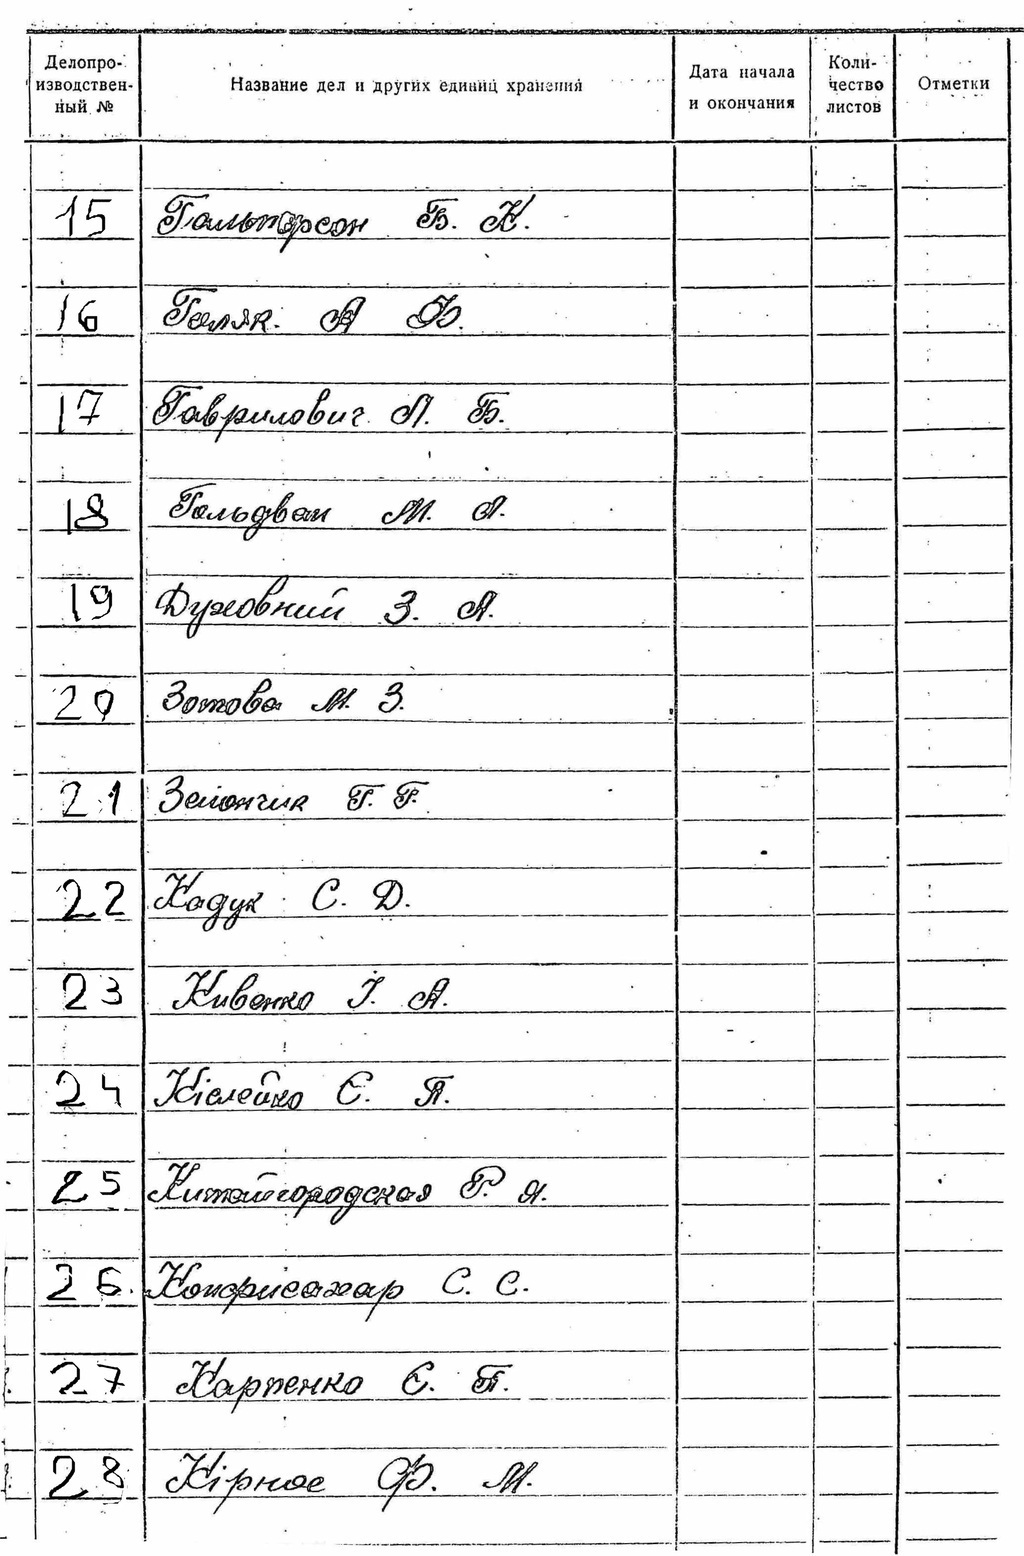 Делопро- изводствен- ный № Название дел и других единиц хранения Дата начала и окончания Коли- чество листов Отметки
15 Гальперсон Б. К.
16 Галяк. А Ф.
17 Гаврилович Л. Б.
18 Гольдван М. А.
19 Духовний З. А.
20 Зотова М. З.
21 Г. Г.
22 Кадук С. Д.
23 Кивенко І. А.
24 Є. П.
25 Китайгородская Р. Я.
26. С. С.
27 Карпенко Є. П.
28 Кірнос Ф. М.